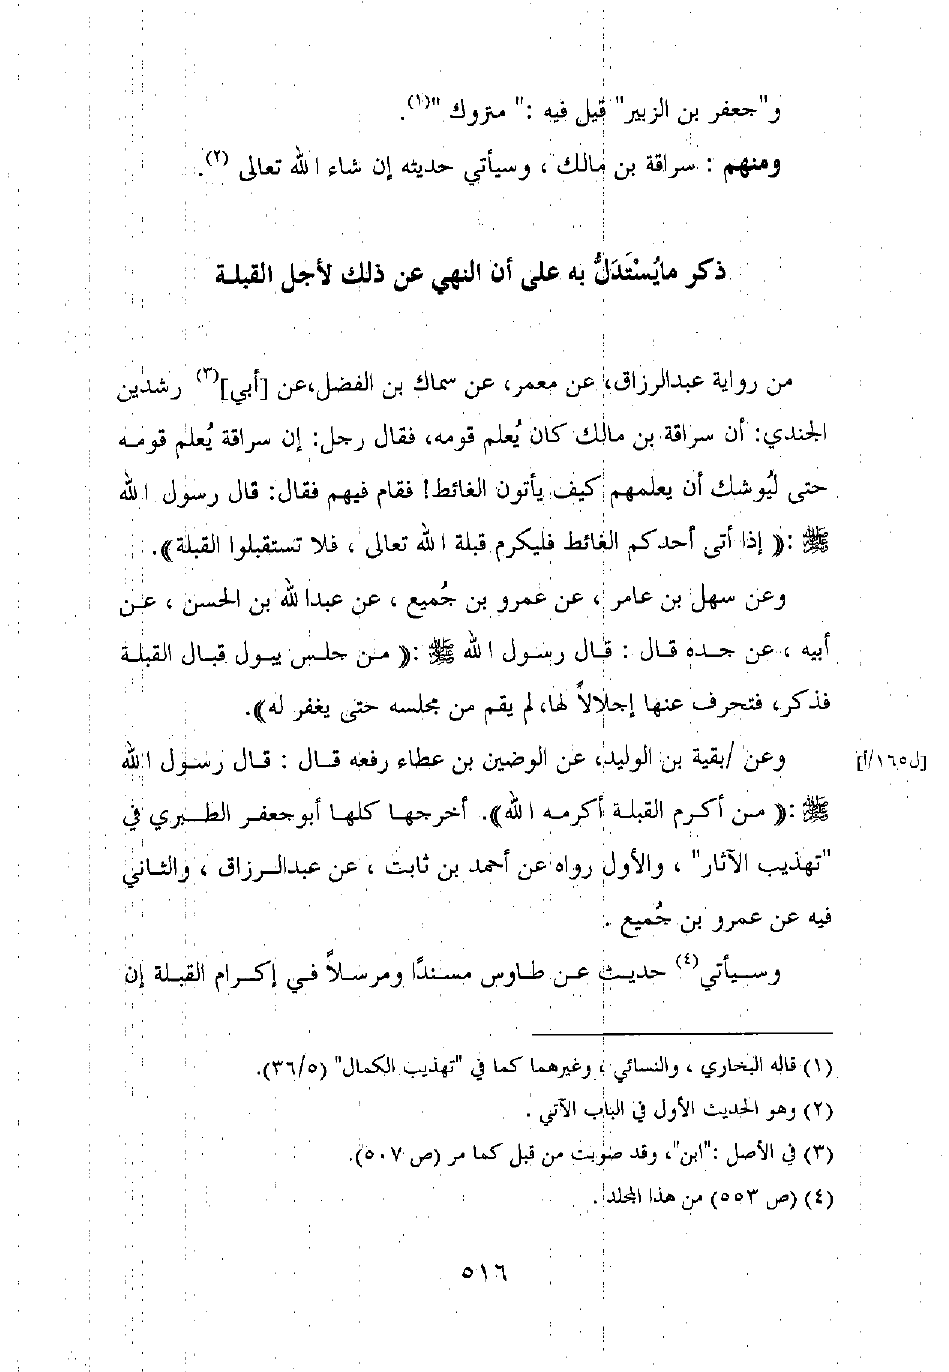 و"جعفر بن الزبير" قيل فيه :" متروك "(١).
ومنهم : سراقة بن مالك ، وسيأتي حديثه إن شاء الله تعالى (٢).
ذكر مايُسْتَدَلُّ به على أن النهي عن ذلك لأجل القبلة
من رواية عبدالرزاق، عن معمر، عن سماك بن الفضل،عن [أبي](٣) رشدين
الجندي: أن سراقة بن مالك كان يُعلم قومه، فقال رجل: إن سراقة يُعلم قومه
حتى ليُوشك أن يعلمهم كيف يأتون الغائط! فقام فيهم فقال: قال رسول الله
ﷺ :﴿ إذا أتى أحدكم الغائط فليكرم قبلة الله تعالى ، فلا تستقبلوا القبلة﴾.
وعن سهل بن عامر ، عن عمرو بن جُميع ، عن عبدالله بن الحسن ، عن
أبيه ، عن جده قال : قال رسول الله ﷺ :﴿ من جلس يبول قبال القبلة
فذكر، فتحرف عنها إجلالاً لها، لم يقم من مجلسه حتى يغفر له﴾.
وعن /بقية بن الوليد، عن الوضين بن عطاء رفعه قال : قال رسول الله [ل١٦٥/أ]
ﷺ :﴿ من أكرم القبلة أكرمه الله﴾. أخرجها كلها أبوجعفر الطبري في
"تهذيب الآثار" ، والأول رواه عن أحمد بن ثابت ، عن عبدالرزاق ، والثاني
فيه عن عمرو بن جُميع .
وسيأتي(٤) حديث عن طاوس مسندًا ومرسلاً في إكرام القبلة إن
(١) قاله البخاري ، والنسائي ، وغيرهما كما في "تهذيب الكمال" (٣٦/٥).
(٢) وهو الحديث الأول في الباب الآتي .
(٣) في الأصل :"ابن"، وقد صوبت من قبل كما مر (ص ٥٠٧).
(٤) (ص ٥٥٣) من هذا المجلد .
٥١٦